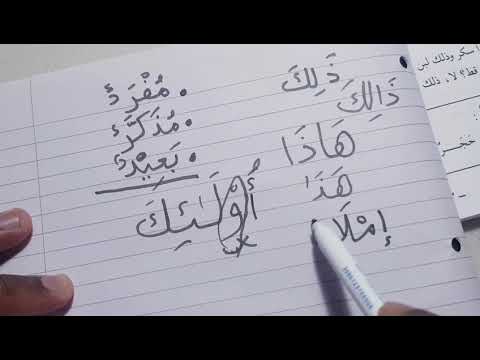 ذَلِكَ
ذَالِكَ
هَاذَا
هَذَا
إِمْلَاء
• مُفْرَدٌ
• مُذَكَّرٌ
• بَعِيْدٌ
أُوْلَـٰئِكَ
سكر وذلك لبن
قط؟ لا، ذلك